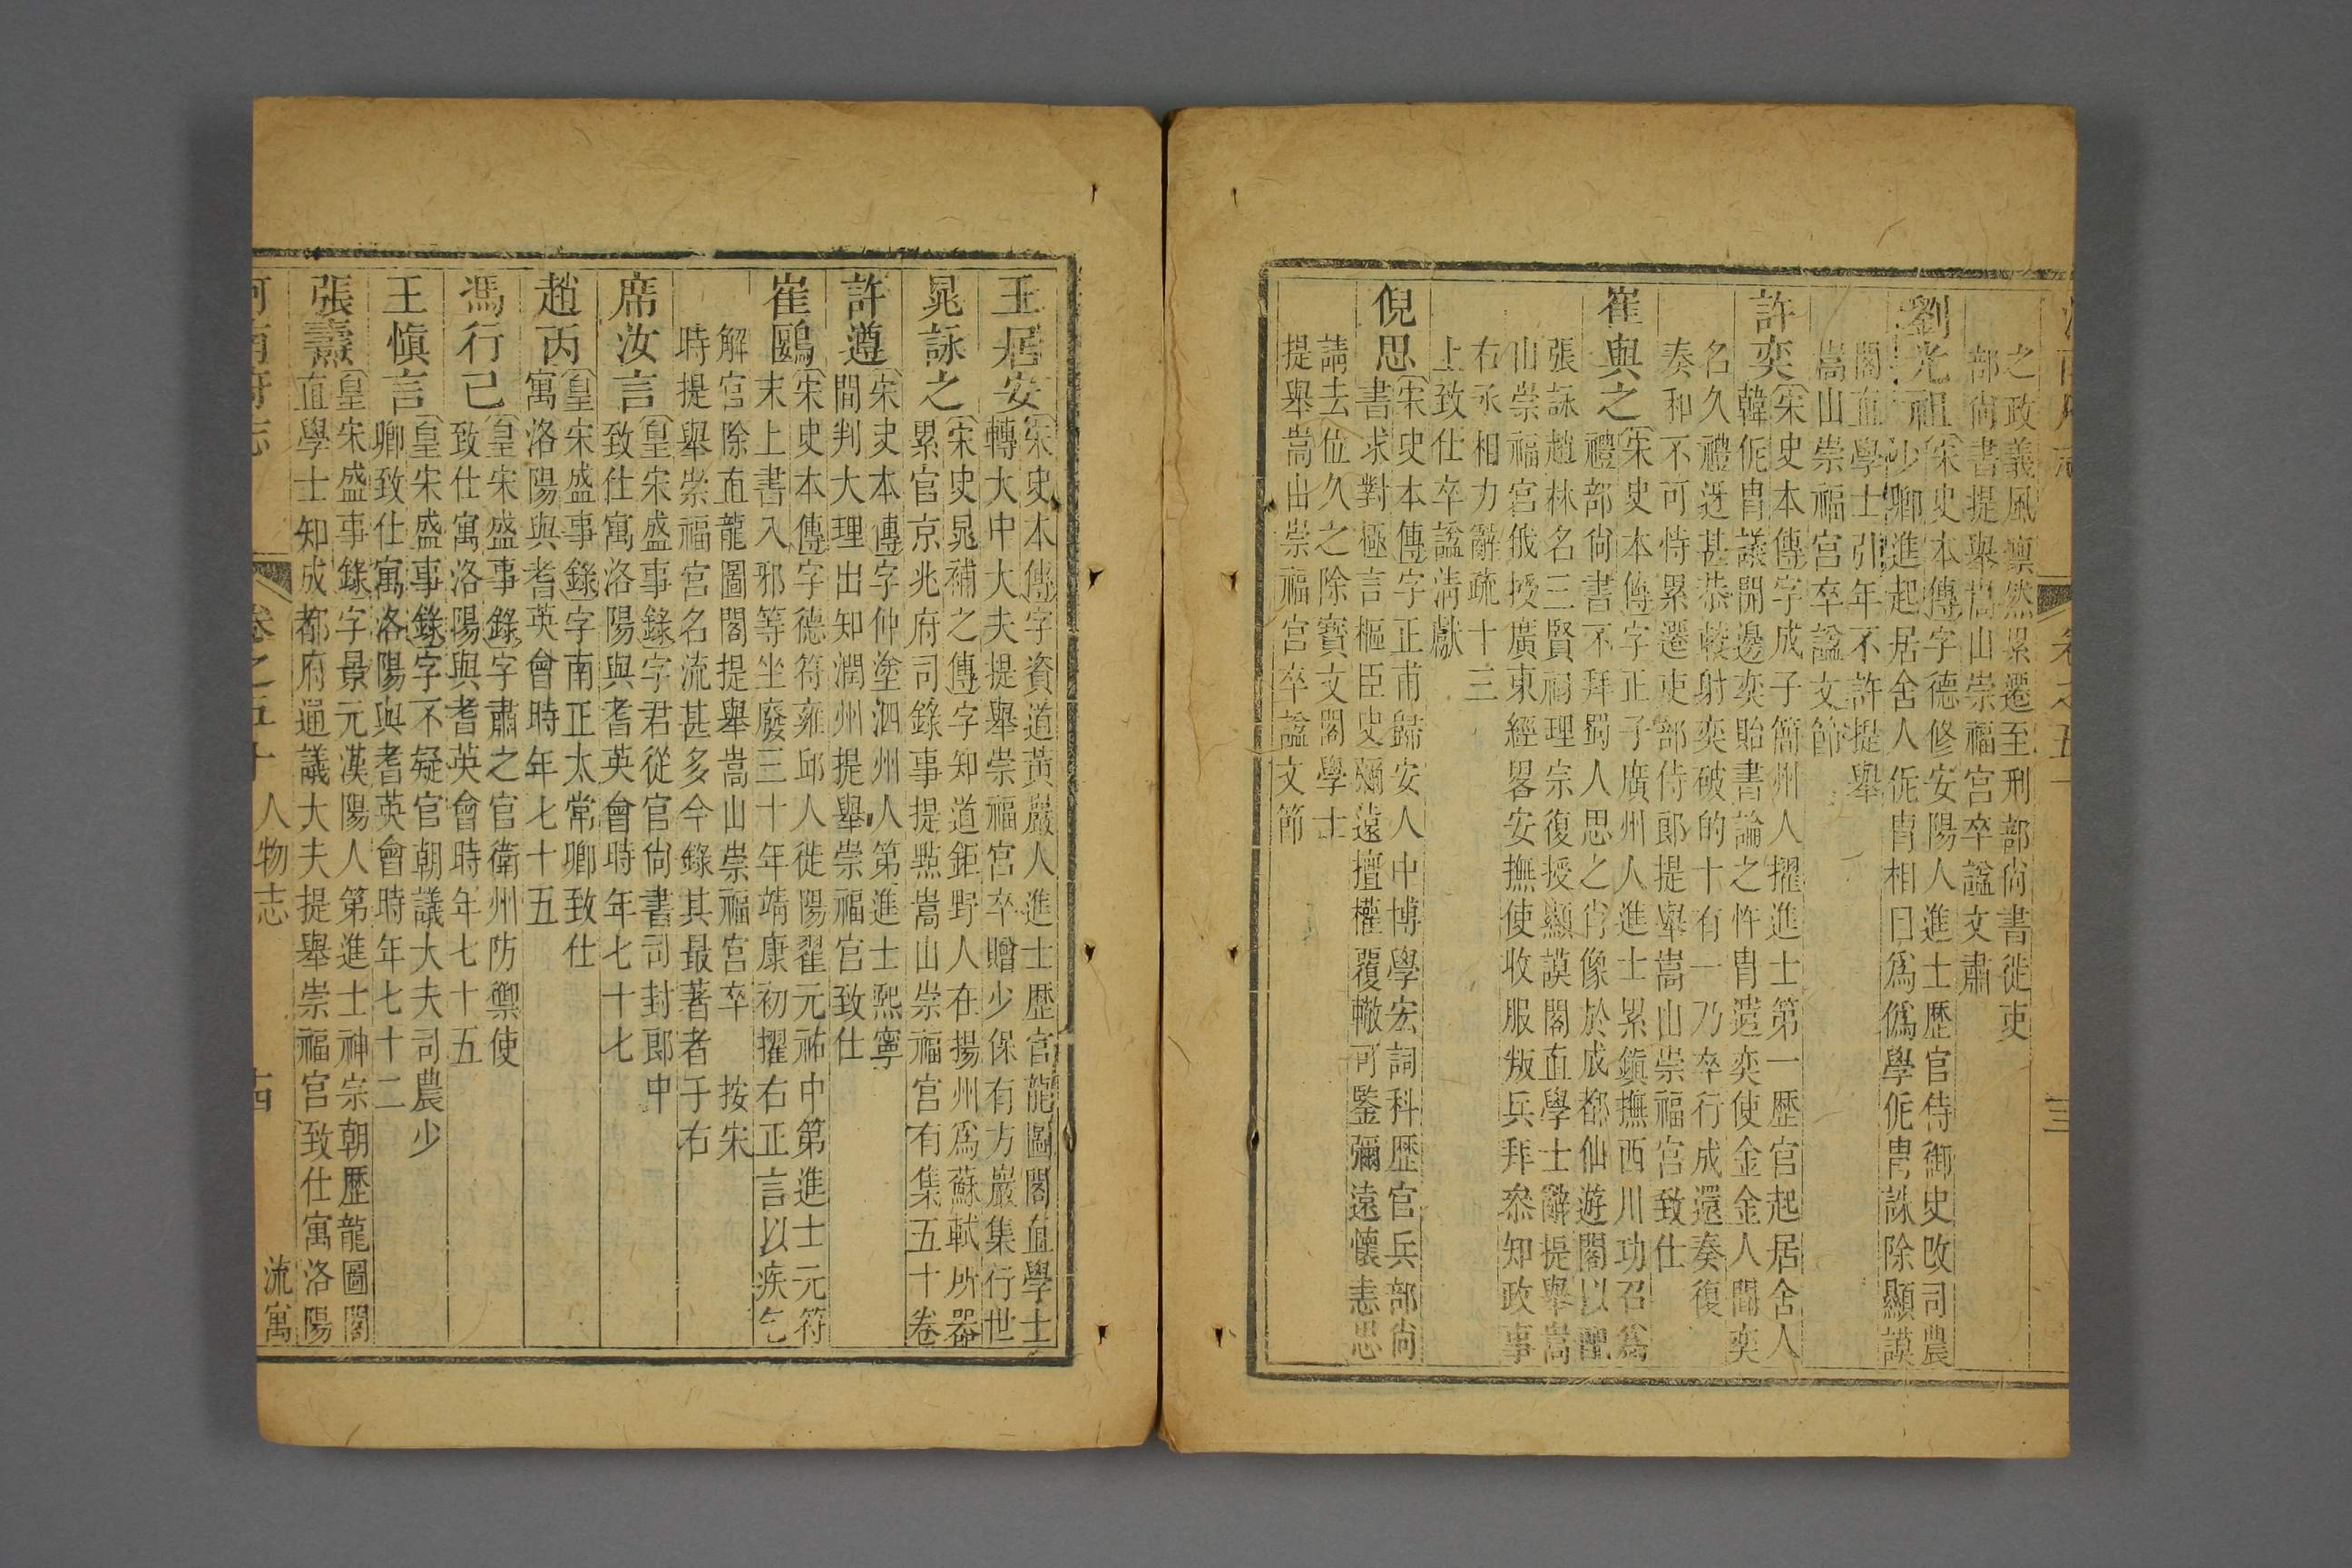 之政義風凛然累遷至刑部尚書徙吏
部尚書提舉嵩山崇福宫卒諡文肅
劉光祖宋史本傳字德修安陽人進士歴官侍御史改司農
少卿進起居舍人侂冑相曰爲僞學侂冑誅除顯謨
閣直學士引年不許提舉
嵩山崇福宫卒諡文節
許奕宋史本傳字成子簡州人擢進士第一歴官起居舍人
韓侂冑議開邊奕貽書論之忤冑遣奕使金金人聞奕
名久禮迓甚恭較射奕破的十有一乃卒行成還奏復
奏和不可恃累遷吏部侍郎提舉嵩山崇福宫致仕
崔與之宋史本傳字正子廣州人進士累鎮撫西川功召爲
禮部尙書不拜蜀人思之肖像於成都仙遊閣以配
張詠趙林名三賢祠理宗復授顯謨閣直學士辭提舉嵩
山崇福宫俄授廣東經畧安撫使收服叛兵拜叅知政事
右丞相力辭疏十三
上致仕卒諡淸獻
倪思宋史本傳字正甫歸安人中博學宏詞科歴官兵部尙
書求對極言樞臣史彌遠擅權覆轍可鑒彌遠懷恚思
請去位久之除寶文閣學士
提舉嵩山崇福宫卒諡文節
王居安宋史本傳字資道黃巖人進士歴官龍圖閣直學士
轉大中大夫提舉崇福宫卒贈少保有方巖集行世
晁詠之宋史晁補之傳字知道鉅野人在揚州爲蘇軾所器
累官京兆府司錄事提㸃嵩山崇福宫有集五十卷
許遵宋史本傳字仲塗泗州人第進士熙寧
間判大理出知潤州提舉崇福宫致仕
崔鷗宋史本傳字德符雍邱人徙陽翟元祐中第進士元符
末上書入邪等坐廢三十年靖康初擢右正言以疾乞
解官除直龍圖閣提舉嵩山崇福宫卒　按宋
時提舉崇福宫名流甚多今錄其最著者于右
席汝言皇宋盛事錄字君從官尙書司封郎中
致仕寓洛陽與耆英會時年七十七
趙丙皇宋盛事錄字南正太常卿致仕
寓洛陽與耆英會時年七十五
馮行己皇宋盛事錄字肅之官衛州防禦使
致仕寓洛陽與耆英會時年七十五
王愼言皇宋盛事錄字不疑官朝議大夫司農少
卿致仕寓洛陽與耆英會時年七十二
張燾皇宋盛事錄字景元漢陽人第進士神宗朝歴龍圖閣
直學士知成都府通議大夫提舉崇福宫致仕寓洛陽
河南府志　卷之五十　人物志　流寓